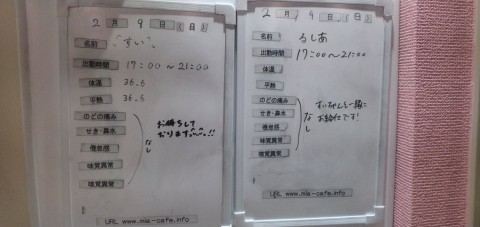 2 月 9 日 (日)
名前 "すい"
出勤時間 17:00~21:00
体温 36.6
平熱 36.6
のどの痛み
せき・鼻水
倦怠感
味覚異常
味覚異常
なし
お待ちして
おります
URL www.mia-cafe.info
2 月 9 日 (日)
名前 るしあ
出勤時間 17:00~21:00
体温
平熱
のどの痛み
せき・鼻水
倦怠感
味覚異常
味覚異常
なし
すいちゃんと一緒に
お給仕です!
URL www.mia-cafe.info